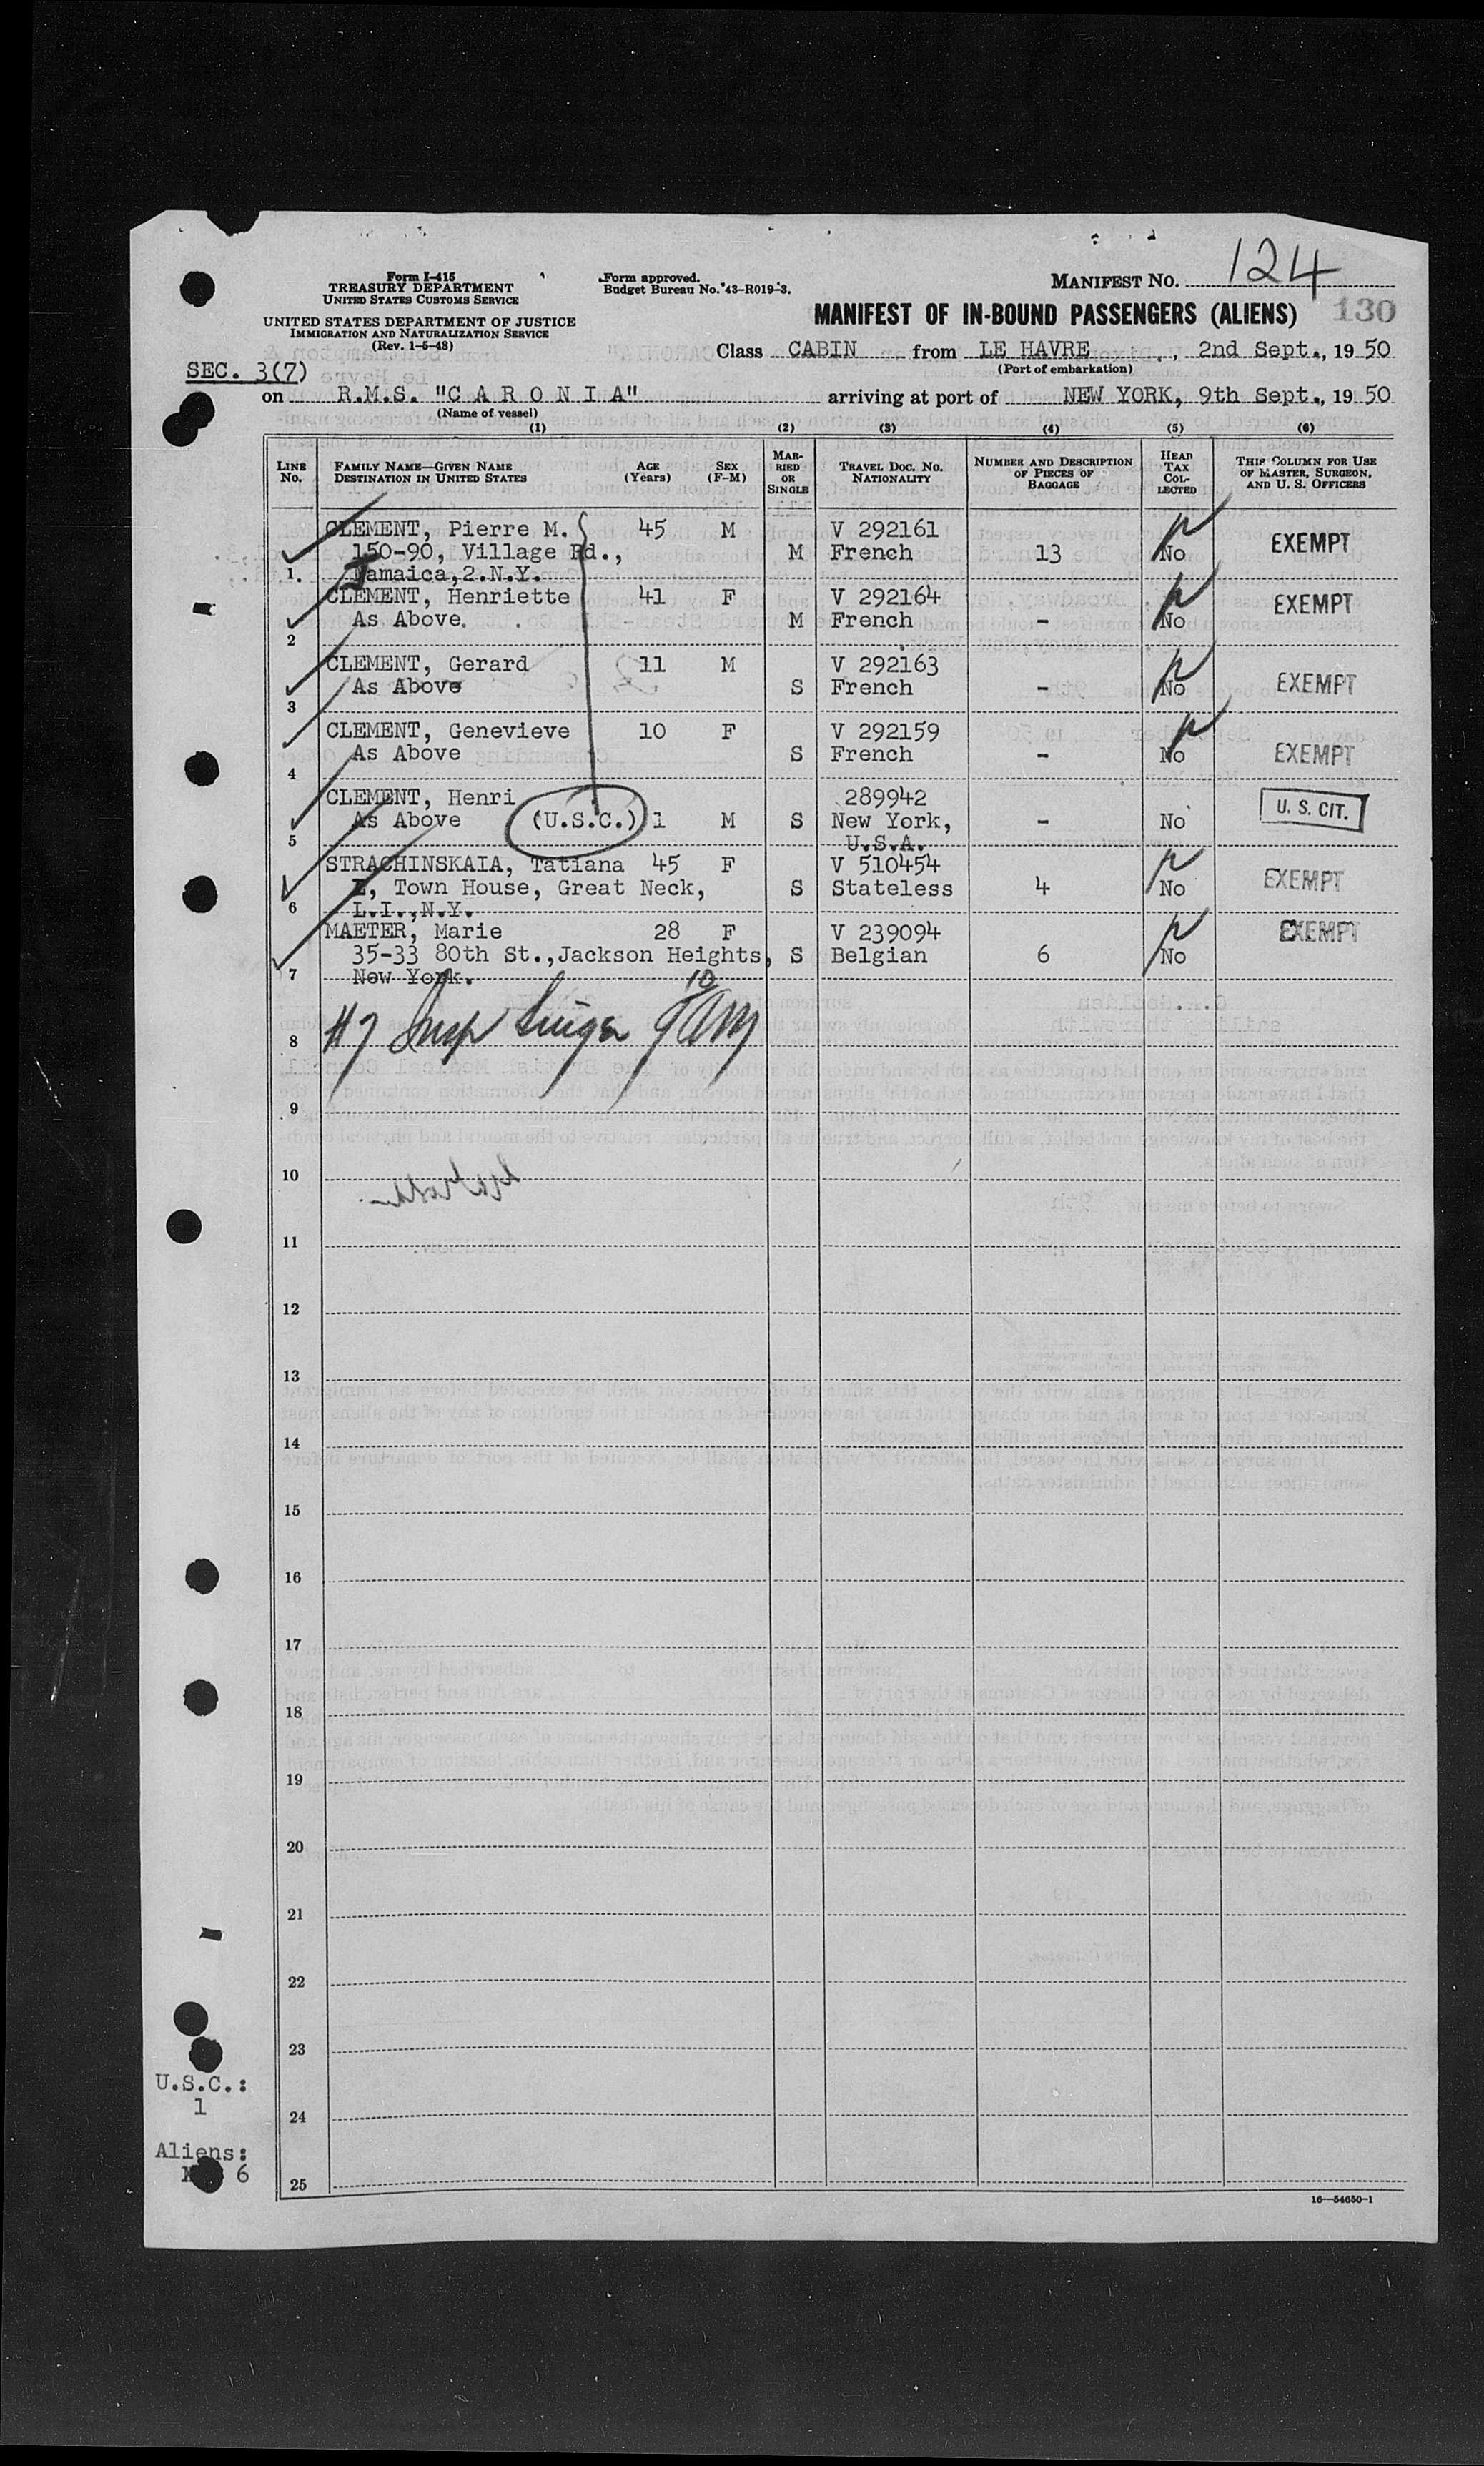 Form I-415
TREASURY DEPARTMENT
UNITED STATES CUSTOMS SERVICE
UNITED STATES DEPARTMENT OF JUSTICE
IMMIGRATION AND NATURALIZATION SERVICE
(Rev. 1-5-48)
Form approved.
Budget Bureau No. 43-R019-3.
MANIFEST NO. 124
MANIFEST OF IN-BOUND PASSENGERS (ALIENS) 130
Class CABIN from LE HAVRE, 2nd Sept., 1950
(Port of embarkation)
SEC. 3(7)
on R.M.S. "C A R O N I A" arriving at port of NEW YORK, 9th Sept., 1950
(Name of vessel)
(1) (2) (3) (4) (5) (6)
LINE NO. FAMILY NAME—GIVEN NAME DESTINATION IN UNITED STATES AGE (YEARS) SEX (F-M) MARRIED OR SINGLE TRAVEL DOC. NO. NATIONALITY NUMBER AND DESCRIPTION OF PIECES OF BAGGAGE HEAD TAX COLLECTED THIS COLUMN FOR USE OF MASTER, SURGEON, AND U. S. OFFICERS
CLEMENT, Pierre M. 45 M V 292161 EXEMPT
150-90, Village Rd., M French 13 No
1. Jamaica,2.N.Y.
CLEMENT, Henriette 41 F V 292164 EXEMPT
As Above. M French - No
2
CLEMENT, Gerard 11 M V 292163
As Above S French - No EXEMPT
3
CLEMENT, Genevieve 10 F V 292159
As Above S French - No EXEMPT
4
CLEMENT, Henri 289942 U. S. CIT.
As Above (U.S.C.) 1 M S New York, - No
5 U.S.A.
STRACHINSKAIA, Tatiana 45 F V 510454 EXEMPT
, Town House, Great Neck, S Stateless 4 No
6 L.I.,N.Y.
MAETER, Marie 28 F V 239094 EXEMPT
35-33 80th St.,Jackson Heights, S Belgian 6 No
7 New York.
#7 Insp
8
9
10
11
12
13
14
15
16
17
18
19
20
21
22
23
U.S.C.:
1
24
Aliens:
6
25
16—54650-1